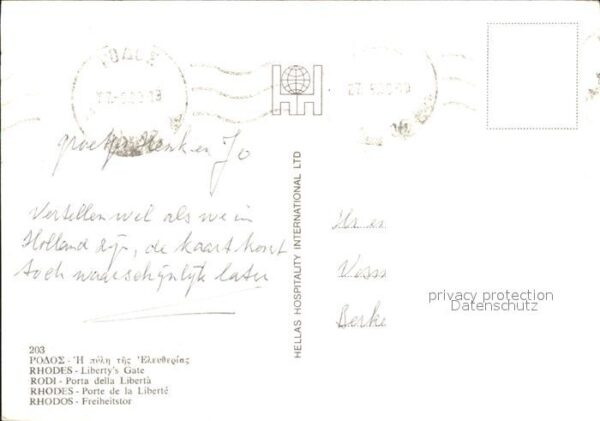 ΡΟΔΟΣ
groetjes Henk en Jo
Vertellen wel als we in
Holland zijn, de kaart komt
toch waarschijnlijk later
HELLAS HOSPITALITY INTERNATIONAL LTD
Berke
privacy protection
Datenschutz
203
ΡΟΔΟΣ - Ἡ πύλη τῆς Ἐλευθερίας
RHODES - Liberty's Gate
RODI - Porta della Libertà
RHODES - Porte de la Liberté
RHODOS - Freiheitstor